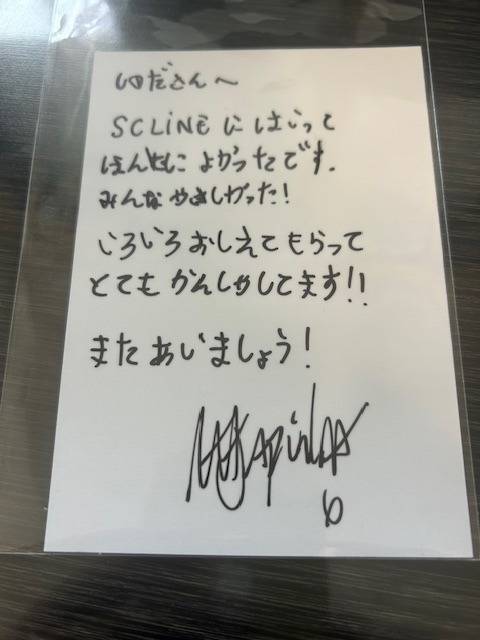 SCLINEにはいって
ほんとによかったです.
みんなやさしかった!
いろいろおしえてもらって
とてもかんしゃしてます!!
またあいましょう!